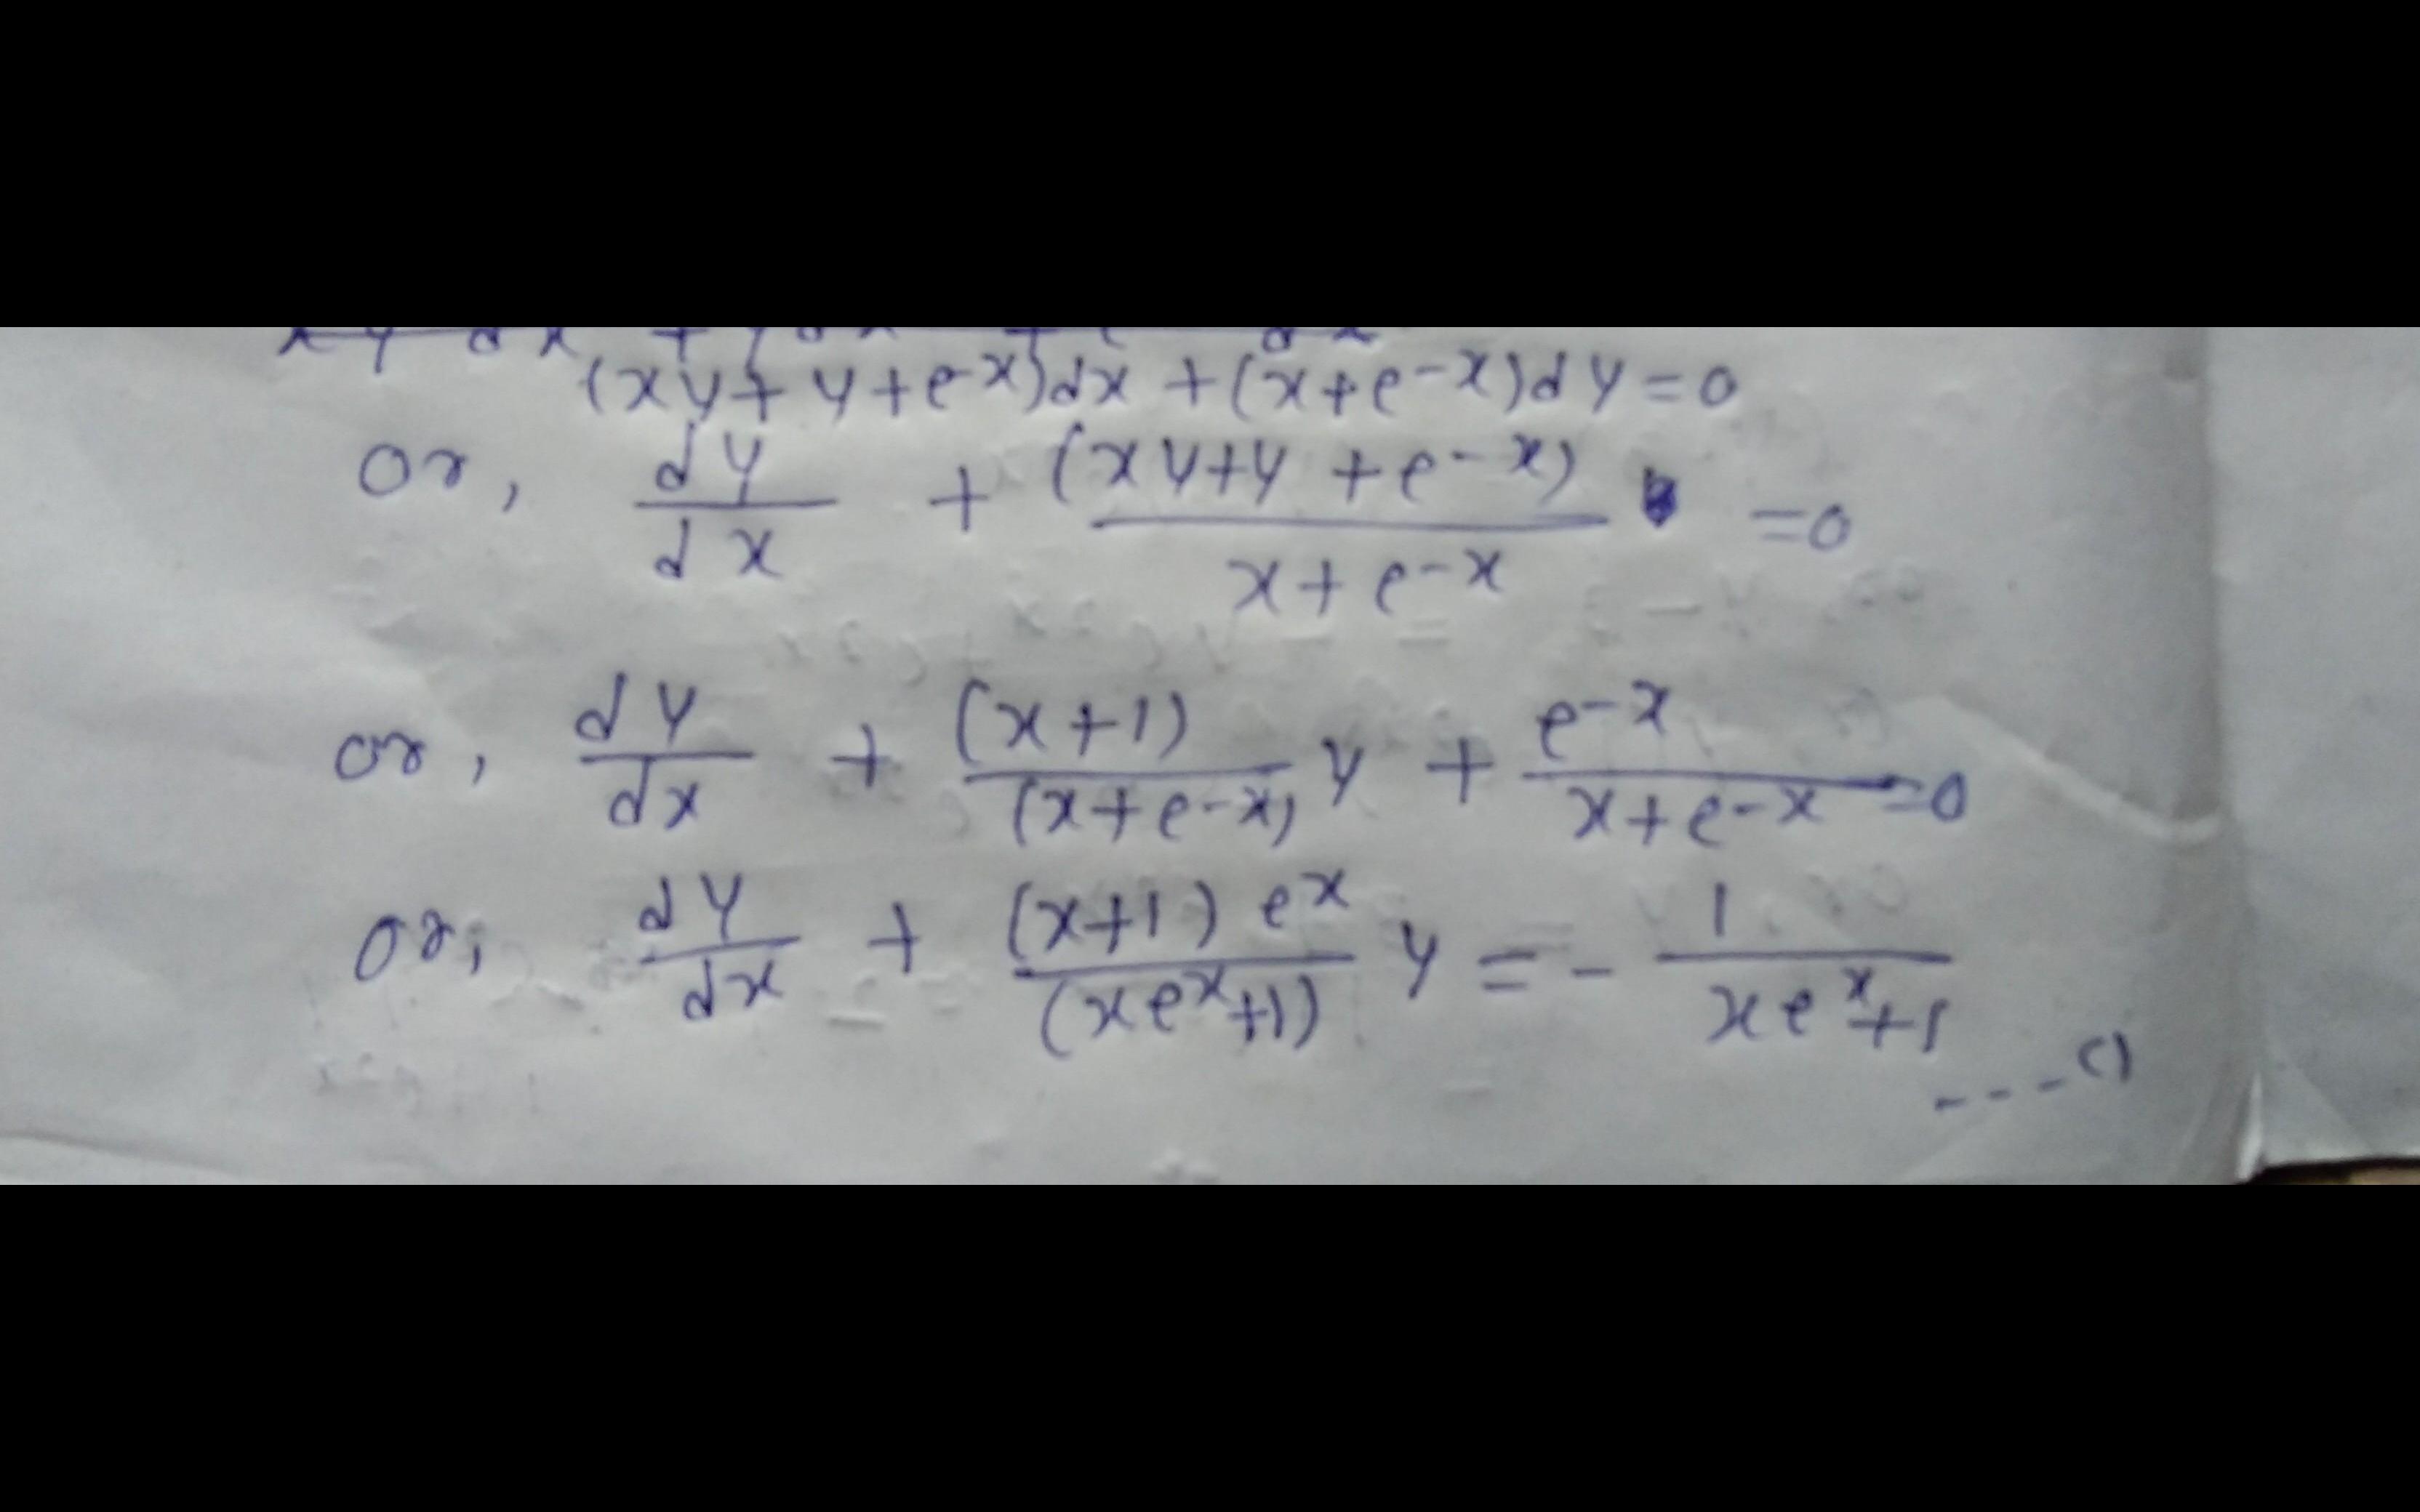 (xy+y+e^-x)dx+(x+e^-x)dy=0
or, dy/dx + (xy+y+e^-x)/(x+e^-x) =0
or, dy/dx + (x+1)/(x+e^-x) y + e^-x/(x+e^-x) =0
or, dy/dx + (x+1)e^x/(xe^x+1) y = - 1/(xe^x+1)
----(1)